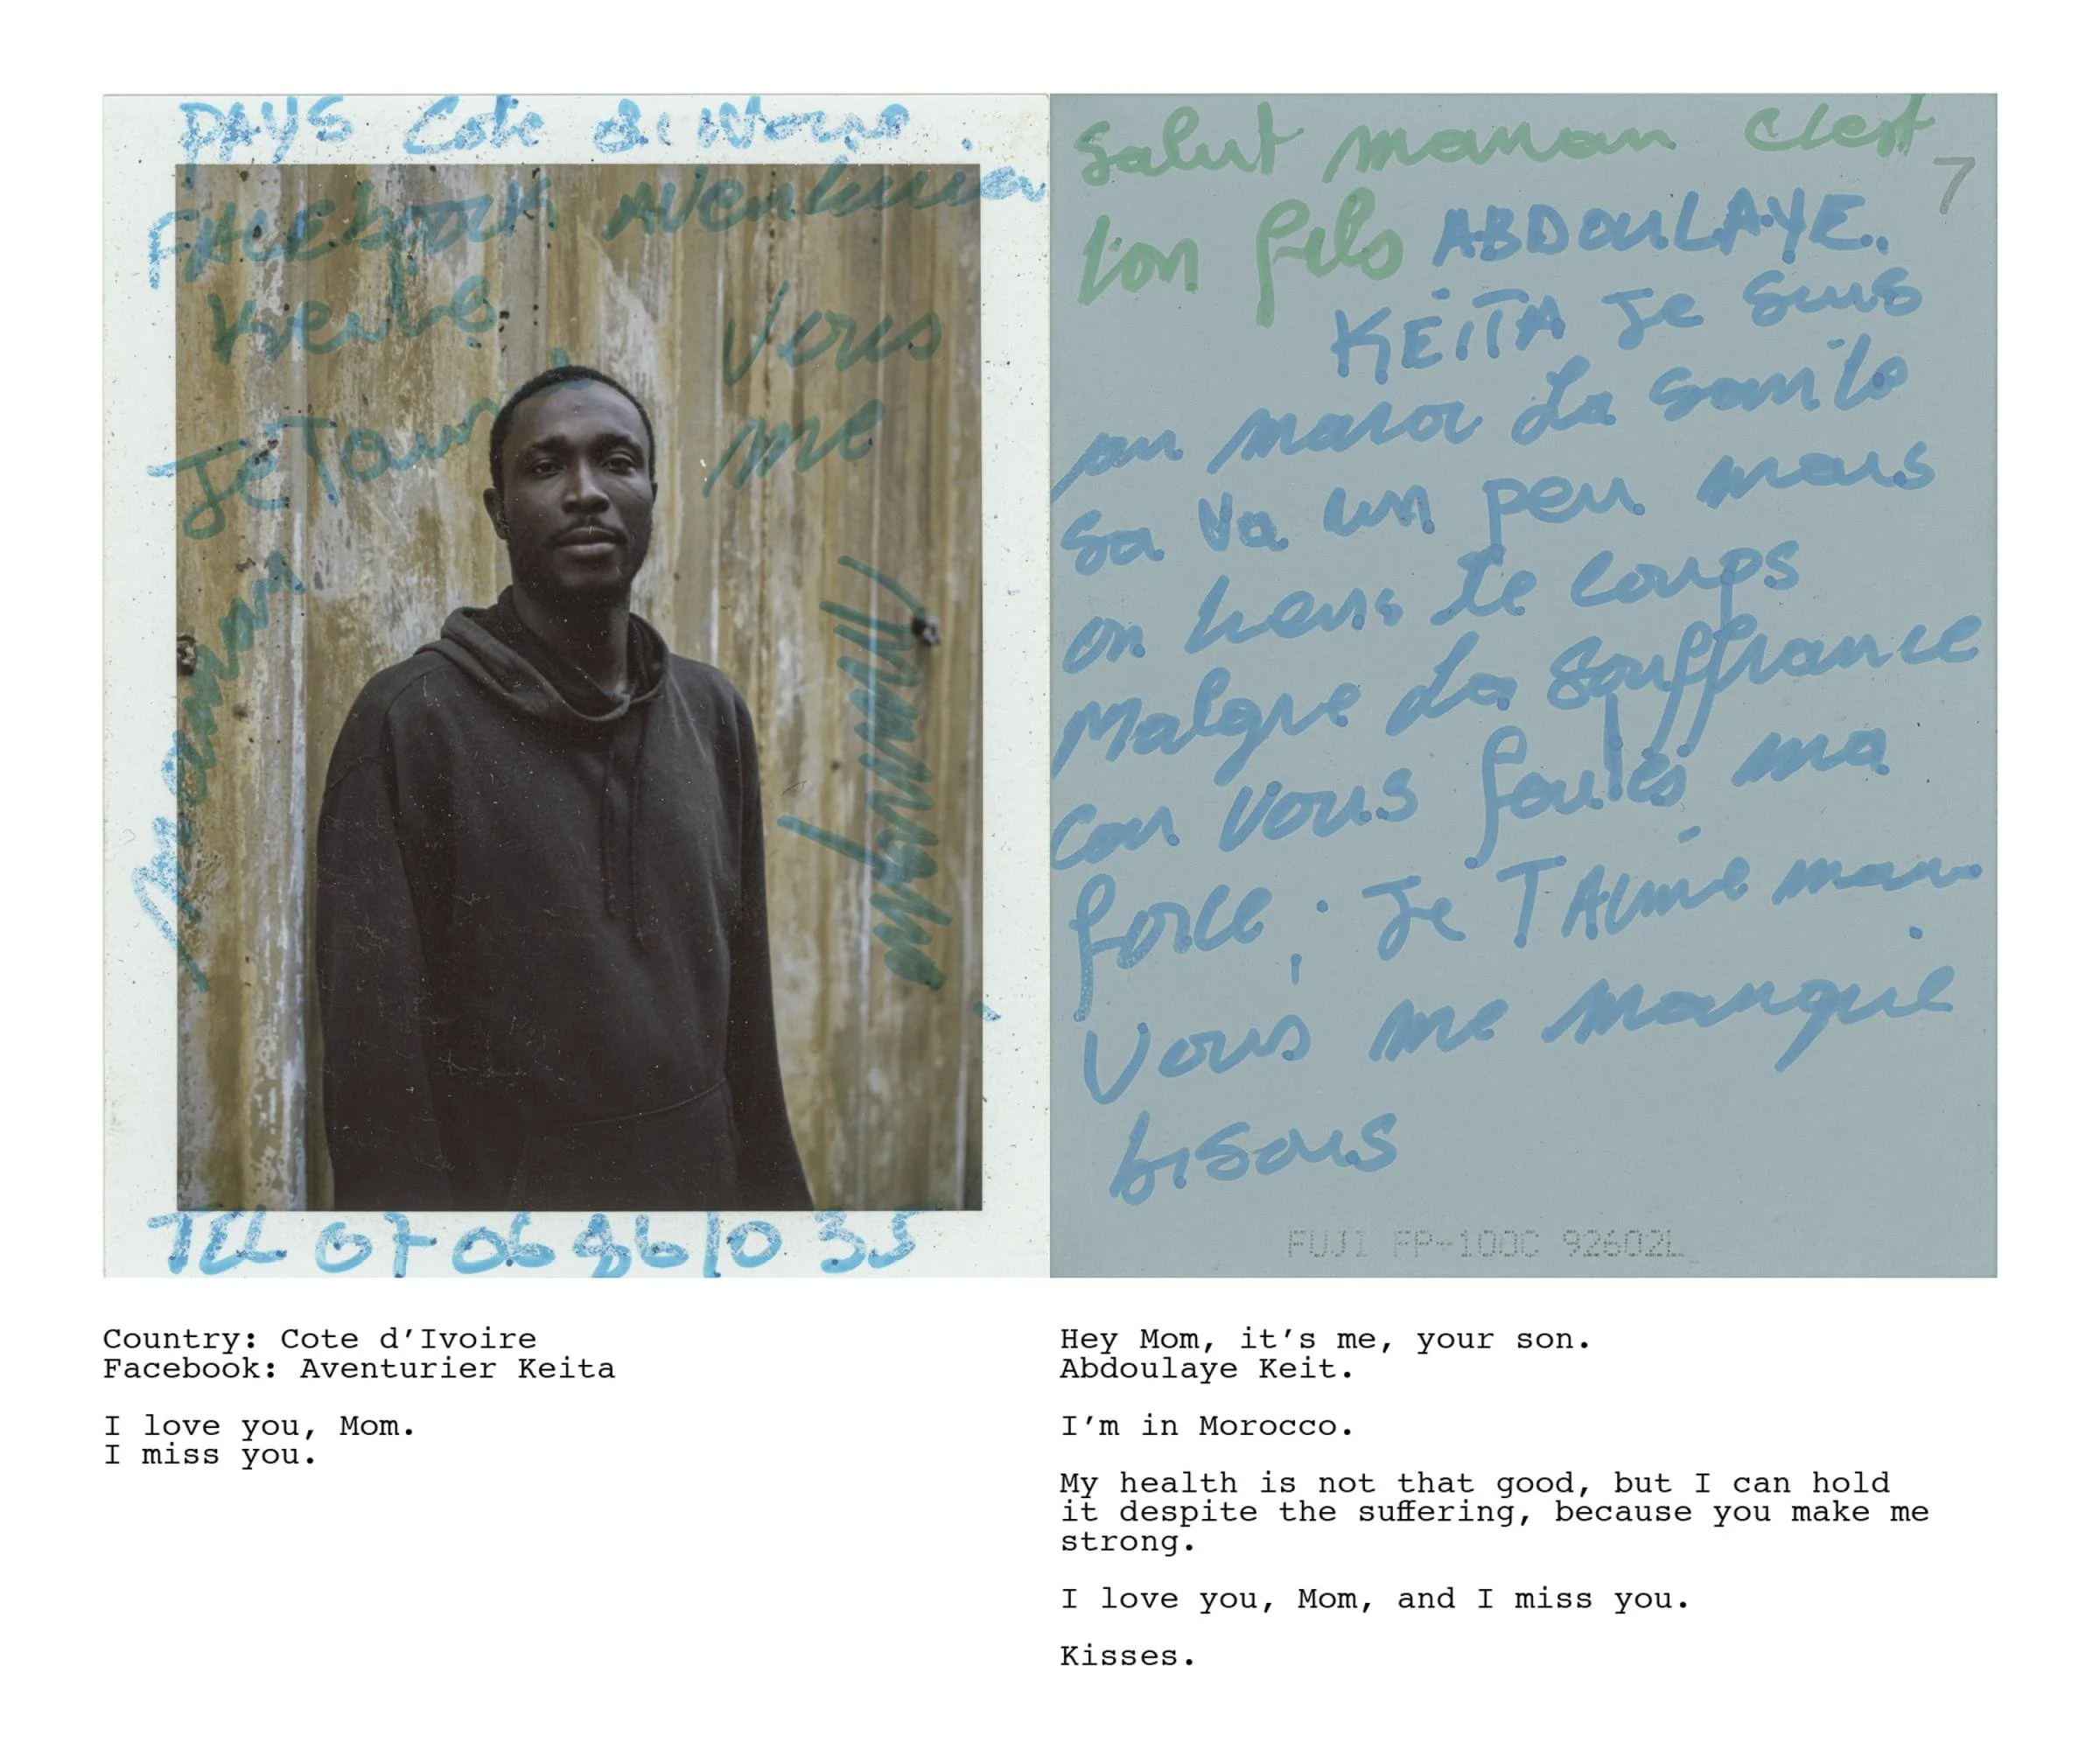 PAYS Cote di Ivoire.
FACEbook Aventurier
Keita
Je Taim
vous
me
maman
manque
TEL 07 06 86 10 35
Salut maman c'est
ton fils ABDOULAYE.
KEITA Je suis
au maroc La sante
sa va un peu mais
on tiens le coups
Malgre La souffrance
car vous foulés ma
force, Je TAime mam
vous me manque
bisous
7
FUJI FP-100C 92602L
Country: Cote d’Ivoire
Facebook: Aventurier Keita
I love you, Mom.
I miss you.
Hey Mom, it’s me, your son.
Abdoulaye Keit.
I’m in Morocco.
My health is not that good, but I can hold
it despite the suffering, because you make me
strong.
I love you, Mom, and I miss you.
Kisses.